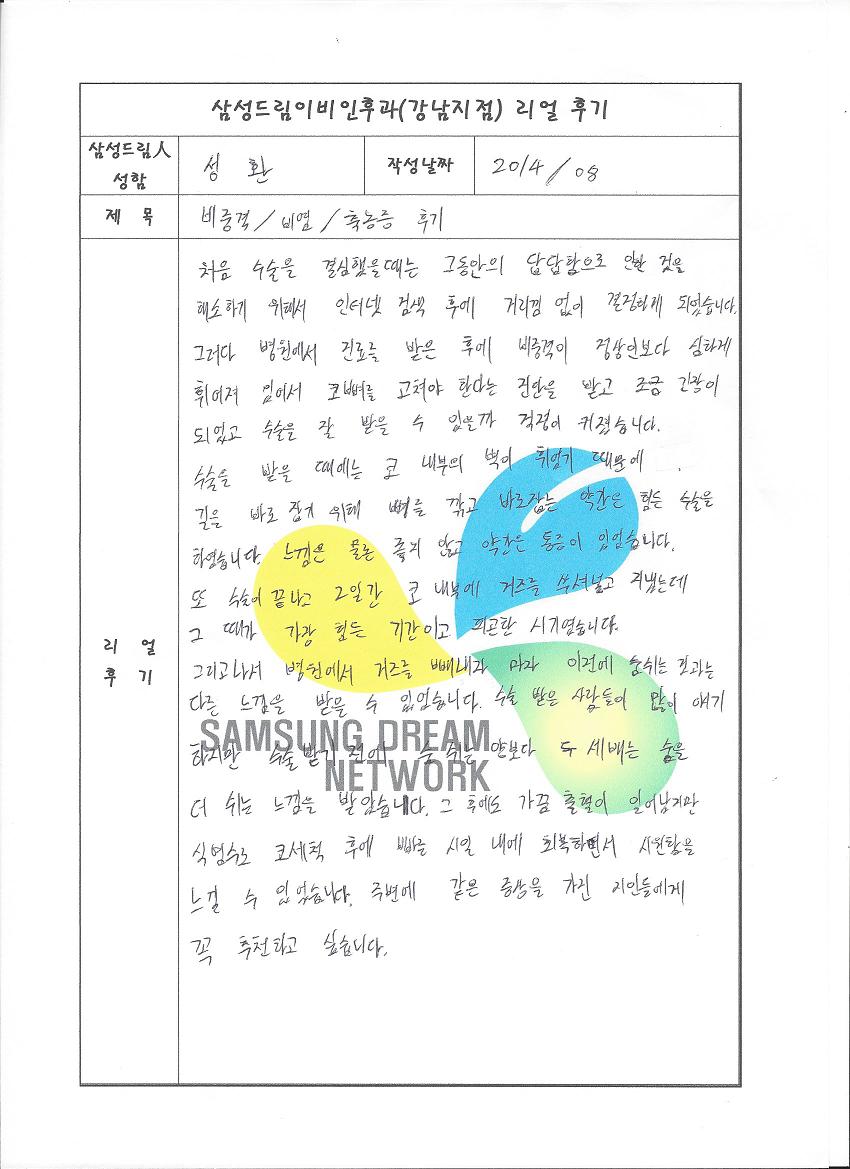 삼성드림이비인후과(강남지점) 리얼 후기
삼성드림人
성함
성 환
작성날짜
2014/08
제 목
비중격/비염/축농증 후기
리 얼
후 기
처음 수술을 결심했을때는 그동안의 답답함으로 인한 것을
해소하기 위해서 인터넷 검색 후에 거리낌 없이 결정하게 되었습니다.
그러다 병원에서 진료를 받은 후에 비중격이 정상인보다 심하게
휘어져 있어서 코뼈를 고쳐야 한다는 진단을 받고 조금 긴장이
되었고 수술을 잘 받을 수 있을까 걱정이 커졌습니다.
수술을 받을 때에는 코 내부의 벽이 휘었기 때문에
길을 바로 잡기 위해 뼈를 깎고 바로잡는 약간은 힘든 수술을
하였습니다. 느낌은 물론 좋지 않고 약간은 통증이 있었습니다.
또 수술이 끝나고 2일간 코 내부에 거즈를 쑤셔넣고 지냈는데
그 때가 가장 힘든 기간이고 피곤한 시기였습니다.
그리고나서 병원에서 거즈를 빼내자 마자 이전에 숨쉬는 것과는
다른 느낌을 받을 수 있었습니다. 수술 받은 사람들이 많이 얘기
하지만 수술받기 전에 숨 쉬는 양보다 두 세배는 숨을
더 쉬는 느낌을 받았습니다. 그 후에도 가끔 출혈이 일어났지만
식염수로 코세척 후에 빠른 시일 내에 회복하면서 시원함을
느낄 수 있었습니다. 주변에 같은 증상을 가진 지인들에게
꼭 추천하고 싶습니다.
SAMSUNG DREAM
NETWORK